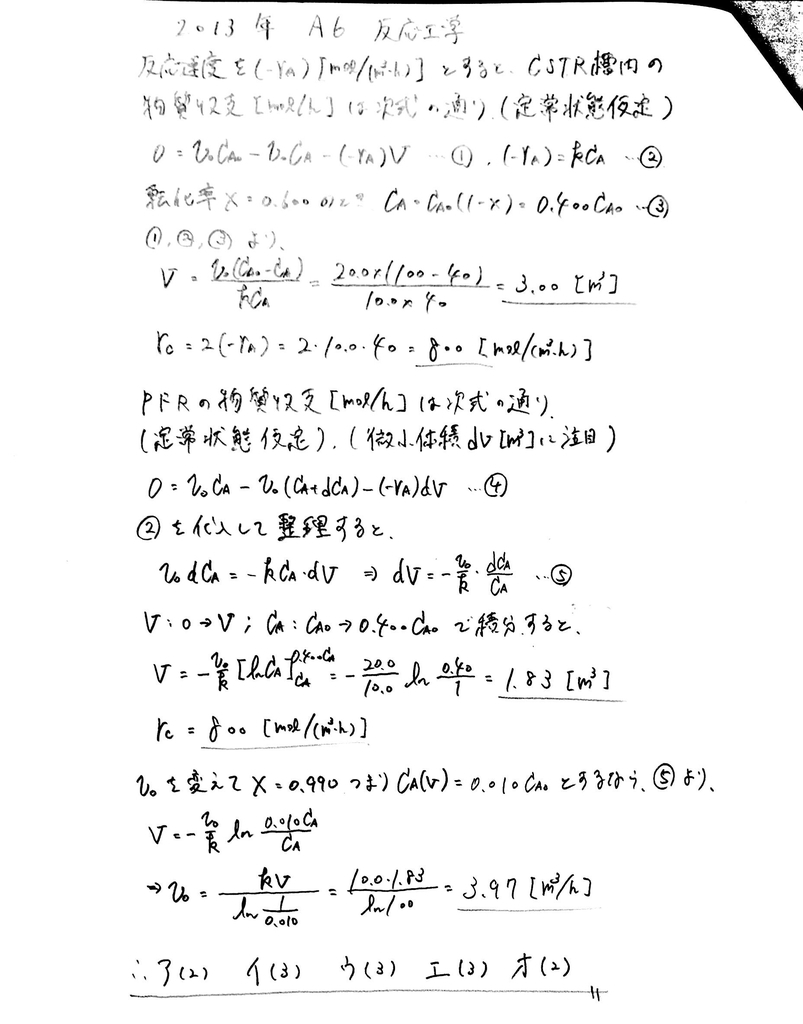 2013年 A6 反応工学
反応速度を(-rA)[mol/(m³·h)]とすると、CSTR槽内の
物質収支[mol/h]は次式の通り(定常状態仮定)
0 = v₀CA₀ - v₀CA - (-rA)V …①, (-rA) = kCA …②
転化率 X = 0.600のとき CA = CA₀(1-X) = 0.400CA₀ …③
①,②,③より、
V = v₀(CA₀-CA)/kCA = 20.0×(100-40)/10.0×40 = 3.00 [m³]
rc = 2(-rA) = 2·10.0·40 = 800 [mol/(m³·h)]
PFRの物質収支[mol/h]は次式の通り
(定常状態仮定), (微小体積dV[m³]に注目)
0 = v₀CA - v₀(CA+dCA) - (-rA)dV …④
②を代入して整理すると、
v₀dCA = -kCA·dV ⇒ dV = -v₀/k · dCA/CA …⑤
V: 0→V ; CA: CA₀→0.400CA₀ で積分すると、
V = -v₀/k [ln CA]_CA^0.400CA = -20.0/10.0 ln 0.40/1 = 1.83 [m³]
rc = 800 [mol/(m³·h)]
v₀を変えて X = 0.990 つまり CA(V) = 0.010CA₀ とするなら、⑤より、
V = -v₀/k ln 0.010CA/CA
⇒ v₀ = kV/ln 1/0.010 = 10.0·1.83/ln 100 = 3.97 [m³/h]
∴ ア(2) イ(3) ウ(3) エ(3) オ(2)